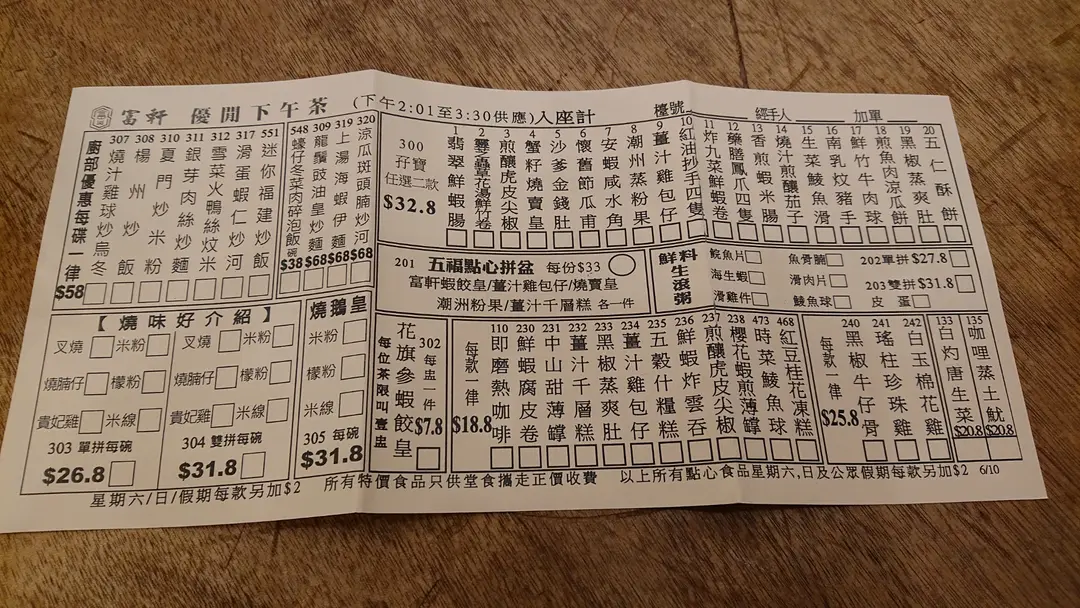 富軒 優閒下午茶 (下午2:01至3:30供應)入座計 檯號 經手人 加單
廚部優惠每碟一律
$58
307 燒汁雞球炒烏冬
308 楊州炒飯
310 夏門炒米粉
311 銀芽肉絲炒麵
312 雪菜火鴨絲炆米
317 滑蛋蝦仁炒河
551 迷你福建炒飯
548 蠔仔冬菜肉碎泡飯 碗 $38
309 龍鬚豉油皇炒麵 $68
319 上湯海蝦伊麵 $68
320 涼瓜斑頭腩炒河 $68
300
孖寶
任選二款
$32.8
1 翡翠鮮蝦腸
2 蟲草花湯鮮竹卷
3 煎釀虎皮尖椒
4 蟹籽燒賣皇
5 沙爹金錢肚
6 懷舊節瓜甫
7 安蝦咸水角
8 潮州蒸粉果
9 薑汁雞包仔
10 紅油抄手四隻
11 炸九菜鮮蝦卷
12 藥膳鳳爪四隻
13 香煎蝦米腸
14 燒汁煎釀茄子
15 生菜鯪魚滑
16 南乳炆豬手
17 鮮竹牛肉球
18 煎魚肉涼瓜餅
19 黑椒蒸爽肚
20 五仁酥餅
201 五福點心拼盆 每份$33
富軒蝦餃皇/薑汁雞包仔/燒賣皇
潮洲粉果/薑汁千層糕 各一件
鮮料生滾粥
鯇魚片 魚骨腩 202單拼$27.8
海生蝦 滑肉片 203雙拼$31.8
滑雞件 鯪魚球 皮蛋
【燒味好介紹】
叉燒 米粉
燒腩仔 檬粉
貴妃雞 米線
303 單拼每碗
$26.8
叉燒 米粉
燒腩仔 檬粉
貴妃雞 米線
304 雙拼每碗
$31.8
燒鵝皇
米粉
檬粉
米線
305 每碗
$31.8
每位茶限叫壹盅
花旗參蝦餃皇
302 每盅一件
$7.8
每款一律
$18.8
110 即磨熱咖啡
230 鮮蝦腐皮卷
231 中山甜薄罉
232 薑汁千層糕
233 黑椒蒸爽肚
234 薑汁雞包仔
235 五穀什糧糕
236 鮮蝦炸雲吞
237 煎釀虎皮尖椒
238 櫻花蝦煎薄罉
473 時菜鯪魚球
468 紅豆桂花凍糕
每款一律
$25.8
240 黑椒牛仔骨
241 瑤柱珍珠雞
242 白玉棉花雞
133 白灼唐生菜 $20.8
135 咖哩蒸土魷 $20.8
星期六/日/假期每款另加$2 所有特價食品只供堂食攜走正價收費 以上所有點心食品星期六,日及公眾假期每款另加$2 6/10